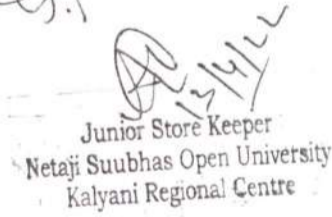 13/4/22
Junior Store Keeper
Netaji Suubhas Open University
Kalyani Regional Centre